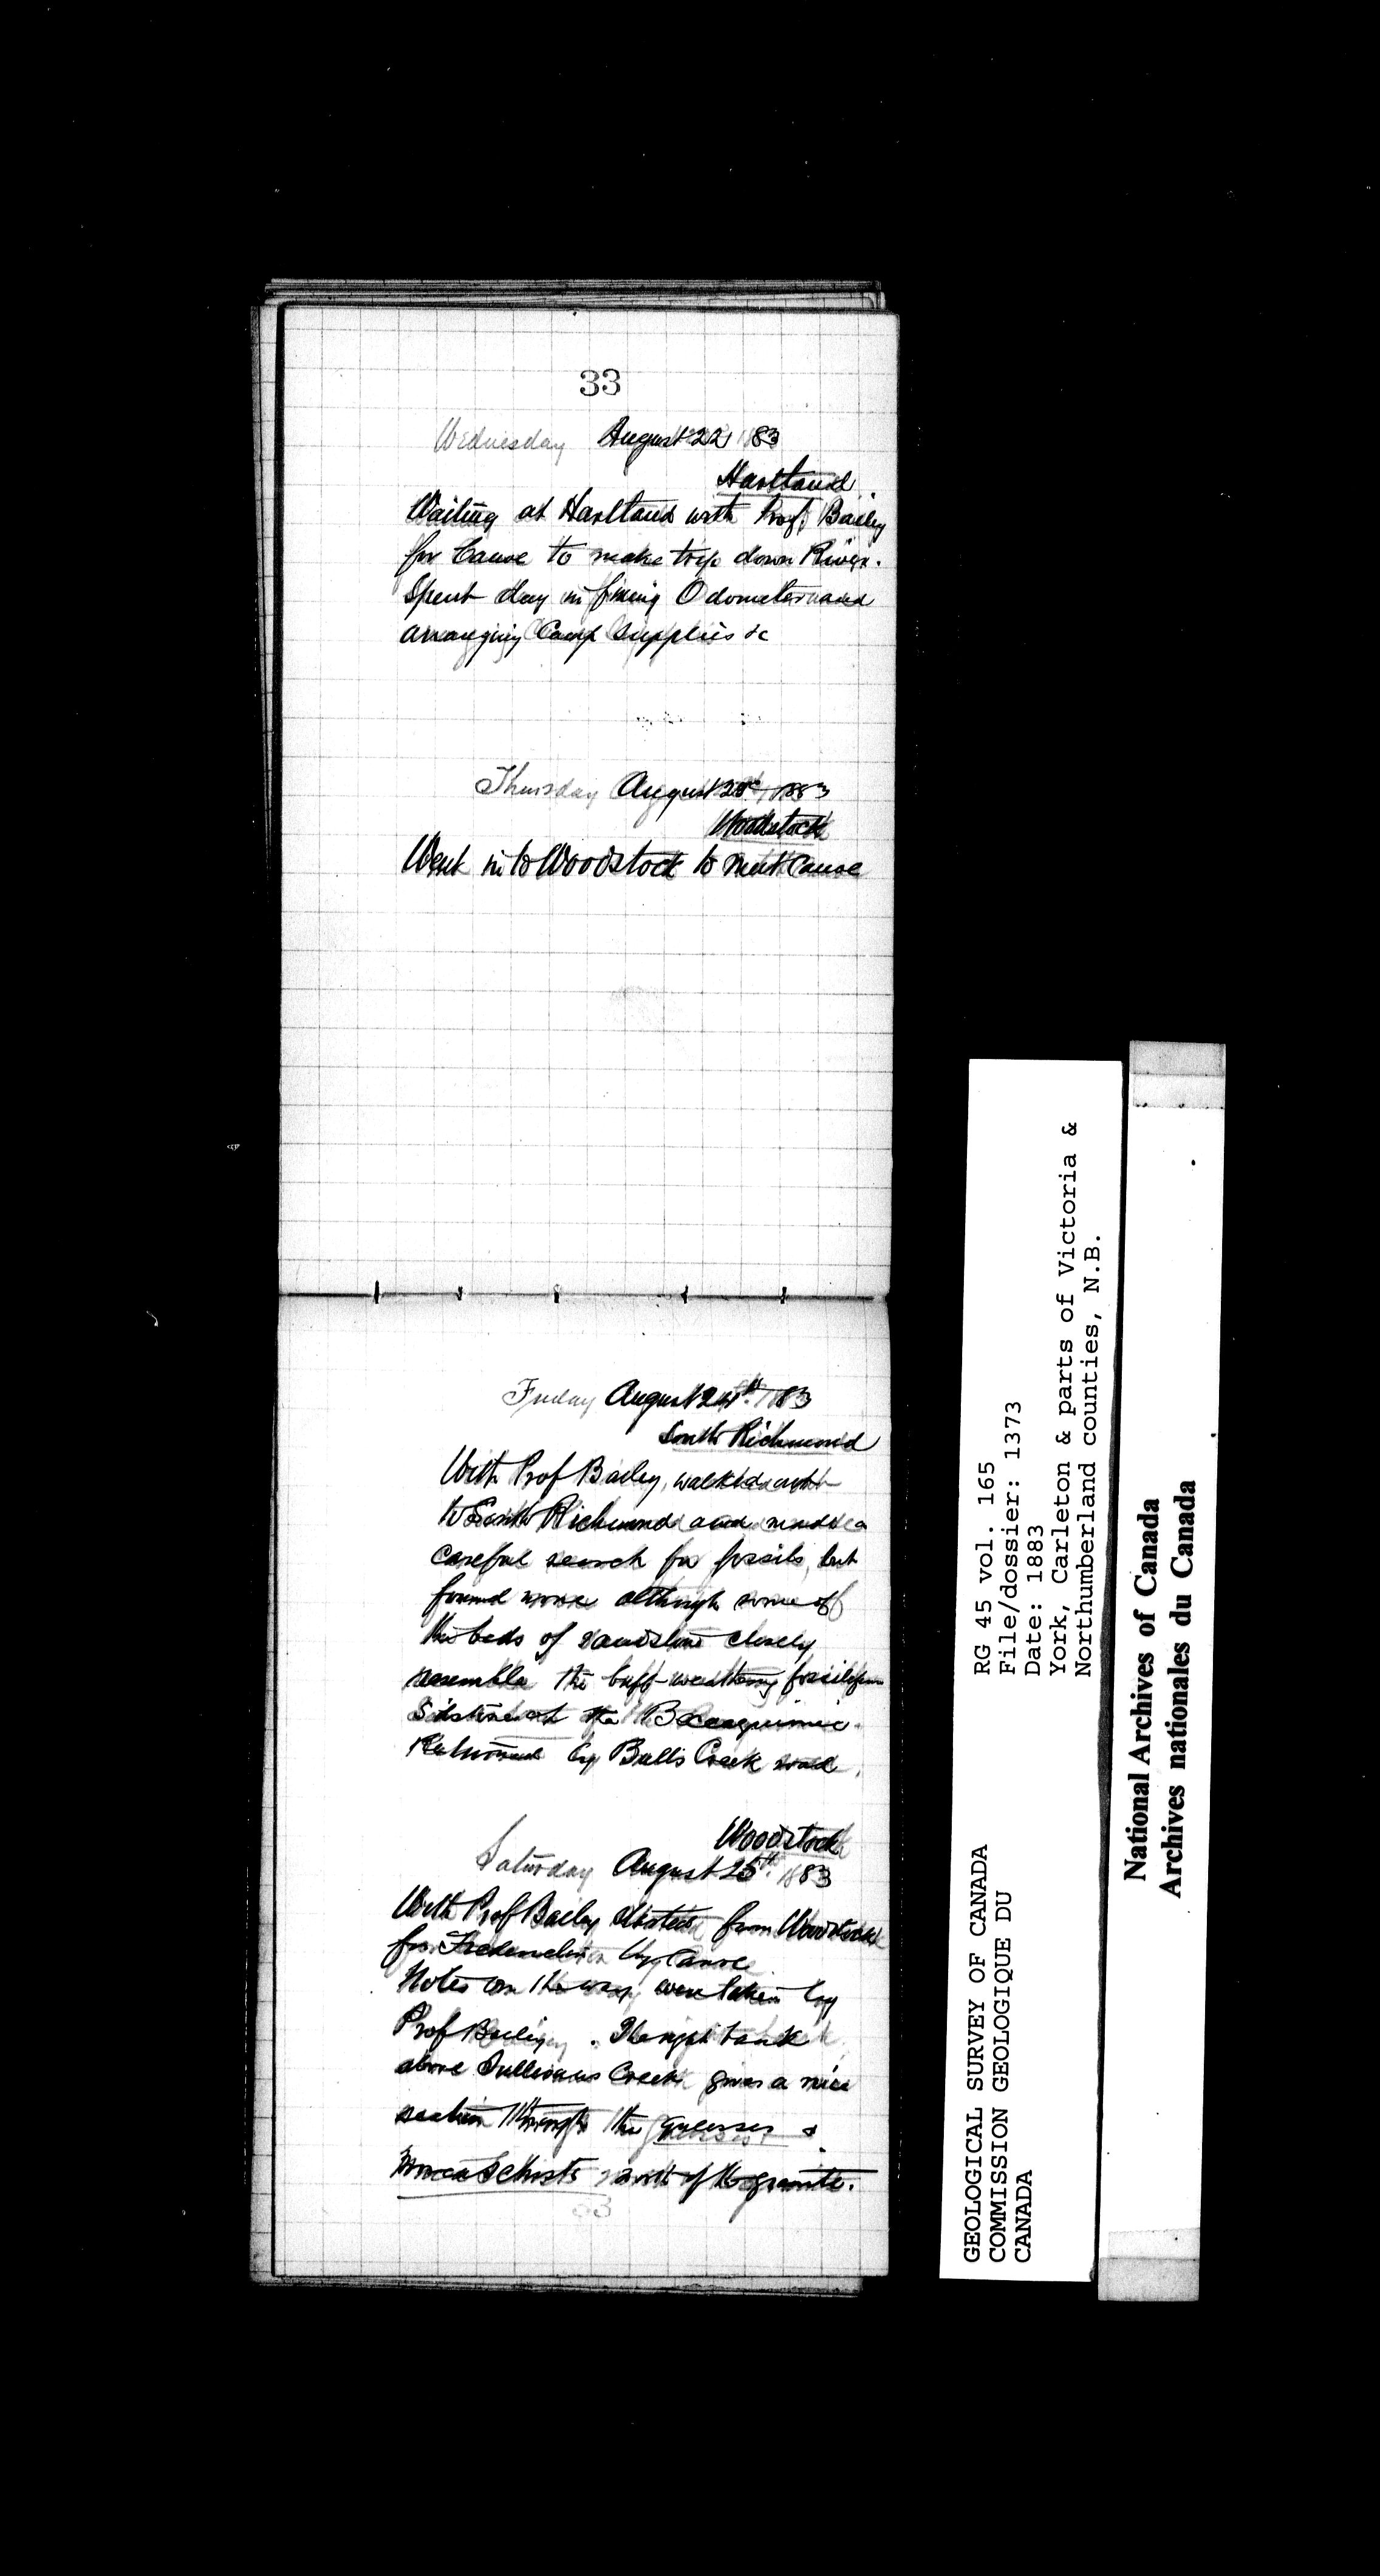 33
Wednesday August 22 1883
Hartland
Waiting at Hartland with Prof. Bailey
for Canoe to make trip down River.
Spent day in fixing Odometer and
arranging Camp Supplies &c
Thursday August 23d 1883
Woodstock
Went in to Woodstock to meet Canoe
Friday August 24th 1883
South Richmond
With Prof Bailey, walked out
to South Richmond and made a
careful search for fossils, but
found none although some of
the beds of sandstone closely
resemble the buff-weathering
at the Becaguimic.
Returned by Bulls Creek road.
Woodstock
Saturday August 25th 1883
With Prof Bailey started from Woodstock
for Fredericton by Canoe
Notes on the way were taken by
Prof Bailey. The right bank
above Sullivans Creek gives a nice
section through the gneisses &
mica schists north of the granite.
GEOLOGICAL SURVEY OF CANADA
COMMISSION GEOLOGIQUE DU
CANADA
RG 45 vol. 165
File/dossier: 1373
Date: 1883
York, Carleton & parts of Victoria &
Northumberland counties, N.B.
National Archives of Canada
Archives nationales du Canada